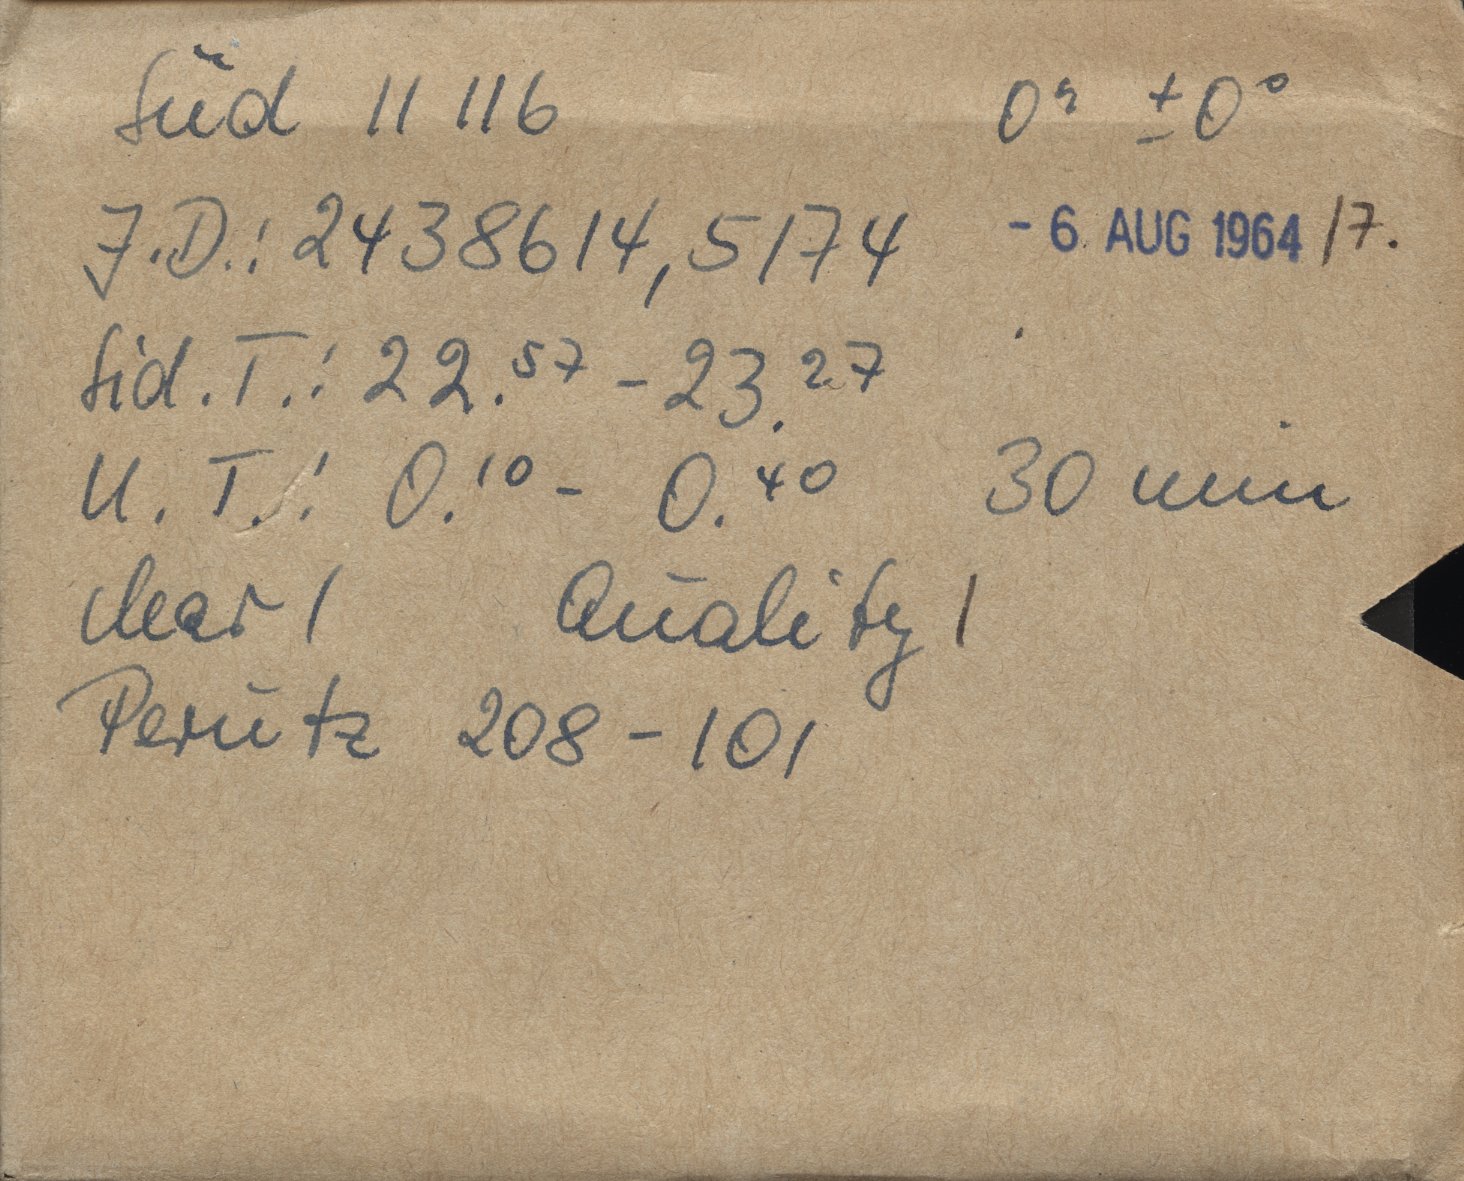 Süd 11 116 0ʰ ±0°
J.D.: 2438614,5174 - 6. AUG 1964 /7.
Sid.T.: 22.⁵⁷ - 23.²⁷
U.T.: 0.¹⁰ - 0.⁴⁰ 30 min
clear 1 Quality 1
Perutz 208 - 101